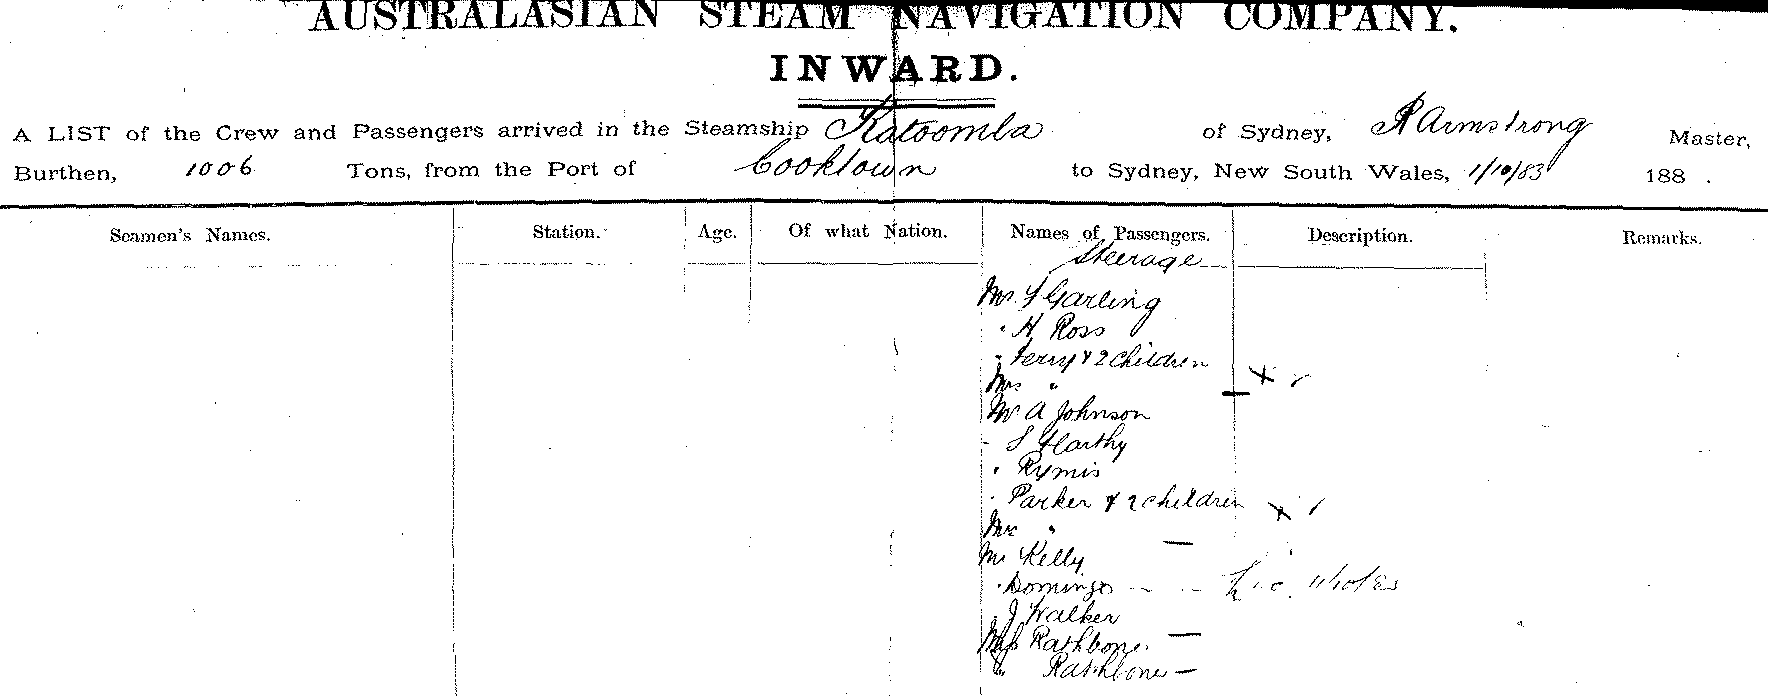 AUSTRALASIAN STEAM NAVIGATION COMPANY.
INWARD.
A LIST of the Crew and Passengers arrived in the Steamship Katoomba of Sydney, R Armstrong Master,
Burthen, 1006 Tons, from the Port of Cooktown to Sydney, New South Wales, 1/10/83 188 .
Seamen's Names. Station. Age. Of what Nation. Names of Passengers. Description. Remarks.
Steerage
Mr. Garling
" H Ross
" & 2 children
Mrs "
Mr A Johnson
Rymis
" Parker & 2 children
"
Mr Kelly
" Domingo
J Walker
Miss Rathbone
" Rathbone